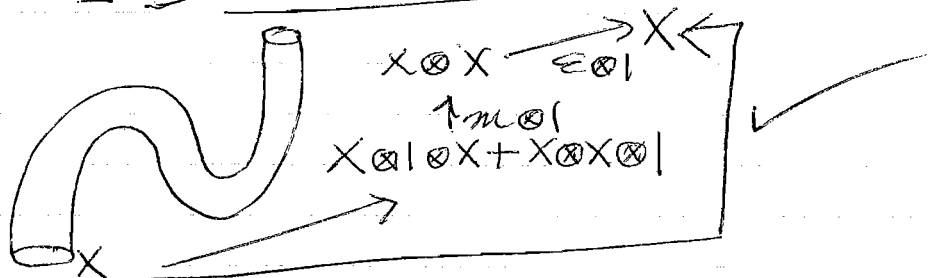 X⊗X → X
ε⊗1
↑ m⊗1
X⊗1⊗X + X⊗X⊗1
X